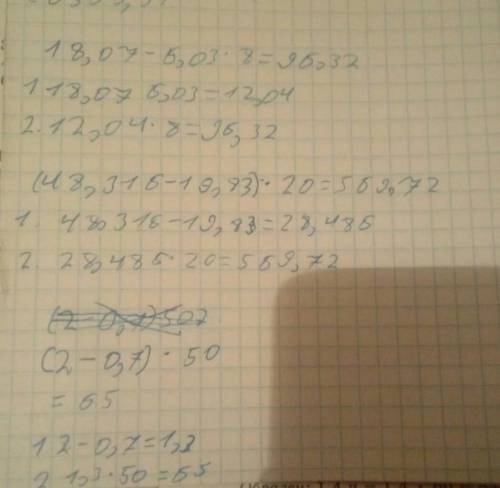 18,07-6,03·8=96,32
1.18,07 6,03=12,04
2.12,04·8=96,32
(48,316-19,83)·20=569,72
1. 48,316-19,83=28,486
2. 28,486·20=569,72
(2-0,7)507
(2-0,7)·50
=65
1 2-0,7=1,3
2 1,3·50=65